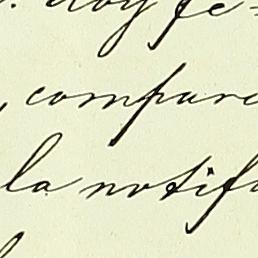 . doy fe=
, compare
la notifi